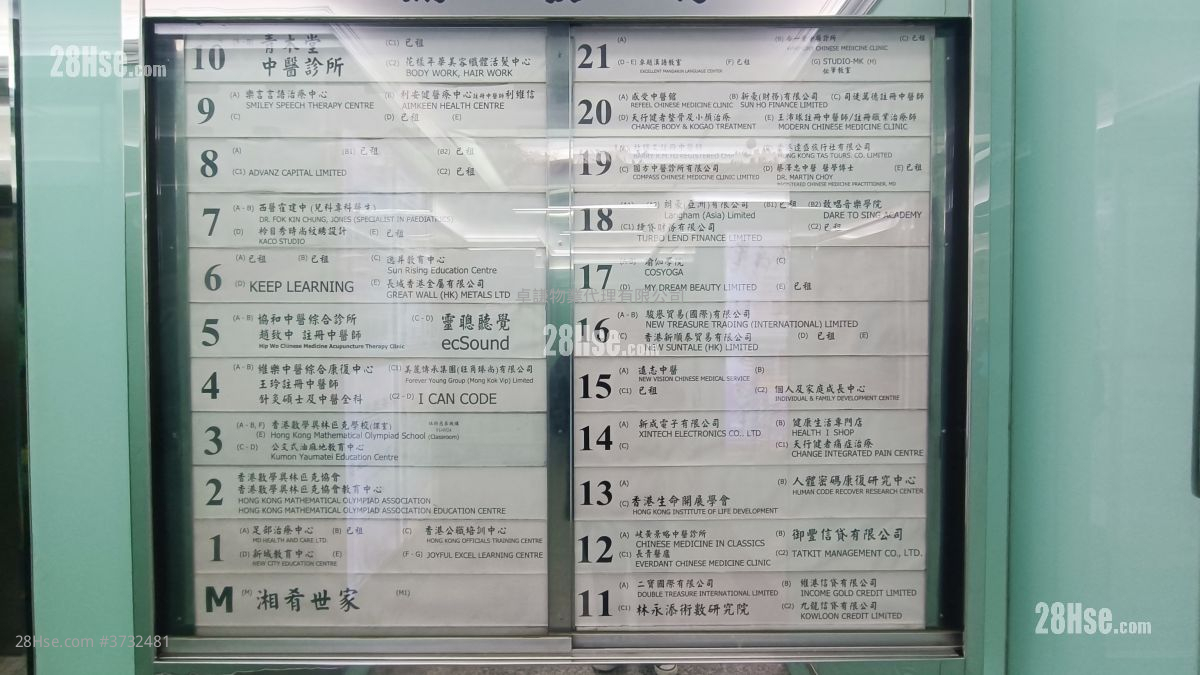 10
青木堂
中醫診所
(C1) 已租
(C2) 花樣年華美容纖體活髮中心
BODY WORK, HAIR WORK
9
(A) 樂言言語治療中心
SMILEY SPEECH THERAPY CENTRE
利安健醫療中心註冊中醫師利維信
AIMKEEN HEALTH CENTRE
(C)
(D) 已租
(E)
8
(A)
(B1) 已租
(B2) 已租
(C1) ADVANZ CAPITAL LIMITED
(C2) 已租
7
(A - B) 西醫霍建中 (兒科專科醫生)
DR. FOK KIN CHUNG, JONES (SPECIALIST IN PAEDIATRICS)
(D) 衿目秀時尚紋繡設計
KACO STUDIO
(E) 已租
6
(A) 已租
(B) 已租
(C) 逸昇教育中心
Sun Rising Education Centre
(D) KEEP LEARNING
(E) 長城香港金屬有限公司
GREAT WALL (HK) METALS LTD
5
(A - B) 協和中醫綜合診所
趙致中 註冊中醫師
Hip Wo Chinese Medicine Acupuncture Therapy Clinic
(C - D) 靈聰聽覺
ecSound
4
(A - B) 維樂中醫綜合康復中心
王玲註冊中醫師
針灸碩士及中醫全科
(C1) 美麗傳承集團(旺角臻尚)有限公司
Forever Young Group (Mong Kok Vip) Limited
(C2 - D) I CAN CODE
3
(A - B, F) 香港數學奧林匹克學校(課室)
(E) Hong Kong Mathematical Olympiad School (Classroom)
(C - D) 公文式油麻地教育中心
Kumon Yaumatei Education Centre
2
香港數學奧林匹克協會
香港數學奧林匹克協會教育中心
HONG KONG MATHEMATICAL OLYMPIAD ASSOCIATION
HONG KONG MATHEMATICAL OLYMPIAD ASSOCIATION EDUCATION CENTRE
1
(A) 足部治療中心
MD HEALTH AND CARE LTD.
(B) 已租
(C) 香港公職培訓中心
HONG KONG OFFICIALS TRAINING CENTRE
(D) 新城教育中心
NEW CITY EDUCATION CENTRE
(E)
(F - G) JOYFUL EXCEL LEARNING CENTRE
M
(M) 湘肴世家
(M1)
21
(A)
CHINESE MEDICINE CLINIC
(C) 已租
(D - E) 卓越漢語教室
EXCELLENT MANDARIN LANGUAGE CENTER
(F) 已租
(G) STUDIO-MK (H)
20
(A) 感受中醫館
REFEEL CHINESE MEDICINE CLINIC
(B) 新豪(財務)有限公司
SUN HO FINANCE LIMITED
(C) 司徒萬德註冊中醫師
(D) 天行健者整脊及小顏治療
CHANGE BODY & KOGAO TREATMENT
(E) 王沛琭註冊中醫師/註冊職業治療師
MODERN CHINESE MEDICINE CLINIC
19
香港達盛旅行社有限公司
HONG KONG TAS TOURS. CO. LIMITED
(C) 圓方中醫診所有限公司
COMPASS CHINESE MEDICINE CLINIC LIMITED
(D) 蔡澤忠中醫 醫學博士
DR. MARTIN CHOY
REGISTERED CHINESE MEDICINE PRACTITIONER, MD
(E) 已租
18
朗豪(亞洲)有限公司
Langham (Asia) Limited
(B1) 已租
(B2) 敢唱音樂學院
DARE TO SING ACADEMY
(C1) 捷貸財務有限公司
TURBO LEND FINANCE LIMITED
(C2) 已租
17
瑜伽學院
COSYOGA
(C)
(D) MY DREAM BEAUTY LIMITED
(E) 已租
16
(A - B) 駿廖貿易(國際)有限公司
NEW TREASURE TRADING (INTERNATIONAL) LIMITED
(C) 香港新順泰貿易有限公司
NEW SUNTALE (HK) LIMITED
(D) 已租
(E)
15
(A) 遠志中醫
NEW VISION CHINESE MEDICAL SERVICE
(B)
(C1) 已租
(C2) 個人及家庭成長中心
INDIVIDUAL & FAMILY DEVELOPMENT CENTRE
14
(A) 新成電子有限公司
XINTECH ELECTRONICS CO., LTD
(B) 健康生活專門店
HEALTH I SHOP
(C)
(C1) 天行健者痛症治療
CHANGE INTEGRATED PAIN CENTRE
13
(A)
(B) 人體密碼康復研究中心
HUMAN CODE RECOVER RESEARCH CENTER
(C) 香港生命開展學會
HONG KONG INSTITUTE OF LIFE DEVELOPMENT
12
(A) 岐黃景略中醫診所
CHINESE MEDICINE IN CLASSICS
(B) 御豐信貸有限公司
(C1) 長青醫廬
EVERDANT CHINESE MEDICINE CLINIC
(C2) TATKIT MANAGEMENT CO., LTD.
11
(A) 二寶國際有限公司
DOUBLE TREASURE INTERNATIONAL LIMITED
(B) 維港信貸有限公司
INCOME GOLD CREDIT LIMITED
(C1) 林永添術數研究院
(C2) 九龍信貸有限公司
KOWLOON CREDIT LIMITED
28Hse.com
28Hse.com
28Hse.com
卓諾物業代理有限公司
28Hse.com #3732481